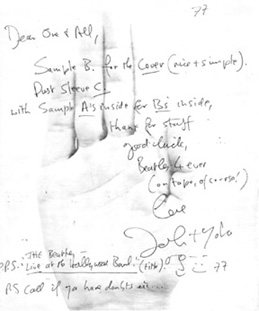 77
Dear One & All,
Sample B. for the Cover (nice + simple).
Dust Sleeve S
with Sample A's inside for B's inside,
thanx for stuff
good luck,
Beatle 4 ever
(on tape, of course!)
Love
John + Yoko
77
P.R.S. "THE Beatles –
Live at the Hollywood Bowl." (title).
PS Call if ya have doubts